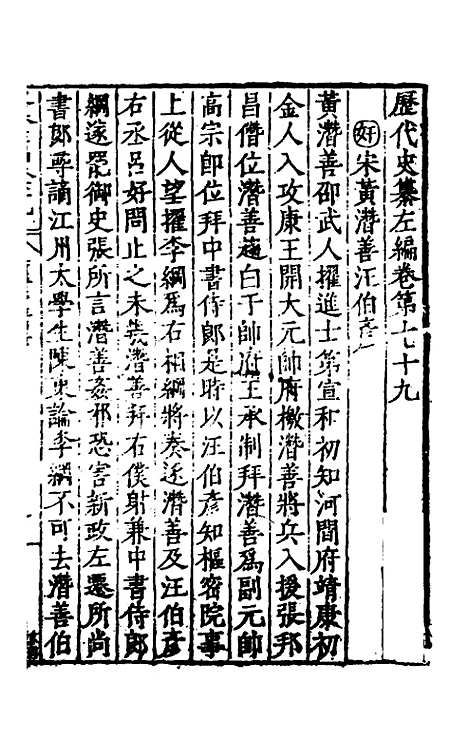 歷代史纂左編卷第七十九
奸宋黃潛善汪伯彥
黃潛善邵武人擢進士第宣和初知河間府靖康初
金人入攻康王開大元帥府檄潛善將兵入援張邦
昌僭位潛善趨白于帥府王承制拜潛善爲副元帥
高宗卽位拜中書侍郎是時以汪伯彥知樞密院事
上從人望擢李綱爲右相綱將奏逐潛善及汪伯彥
右丞呂好問止之未幾潛善拜右僕射兼中書侍郎
綱遂罷御史張所言潛善姦邪恐害新政左遷所尚
書郎尋謫江州太學生陳東論李綱不可去潛善伯